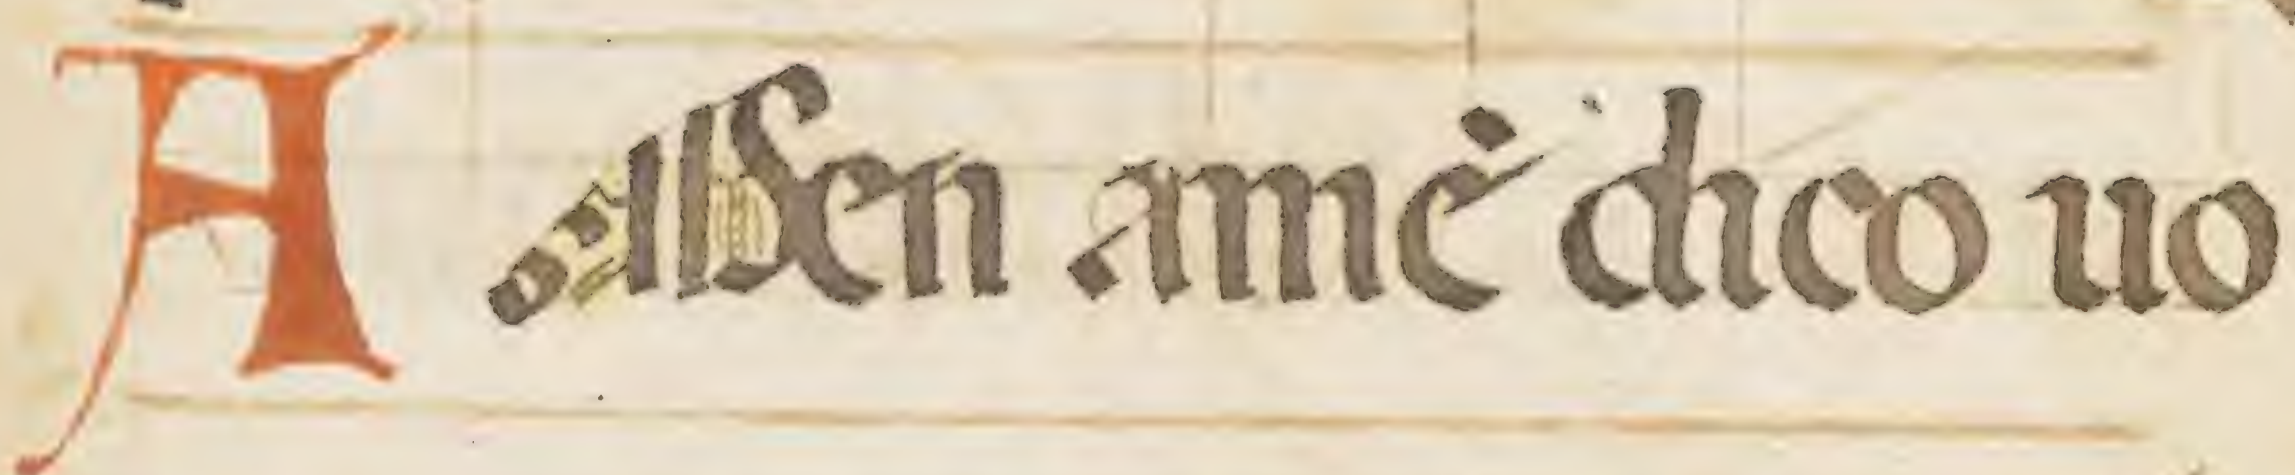 AMen amē dico uo